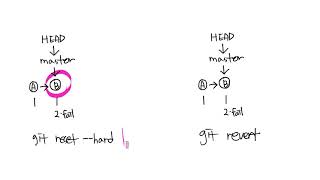 HEAD
master
A → B
1
2-fail
git reset --hard 1
HEAD
master
A → B
1
2-fail
git revert